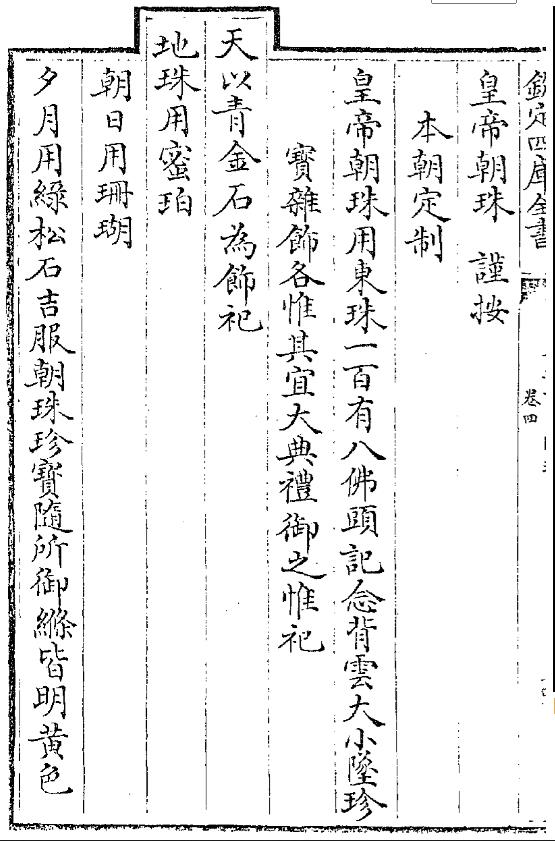 欽定四庫全書
卷四
皇帝朝珠　謹按
本朝定制
皇帝朝珠用東珠一百有八佛頭記念背雲大小墜珍
寶雜飾各惟其宜大典禮御之惟祀
天以青金石為飾祀
地珠用蜜珀
朝日用珊瑚
夕月用綠松石吉服朝珠珍寶隨所御縧皆明黃色